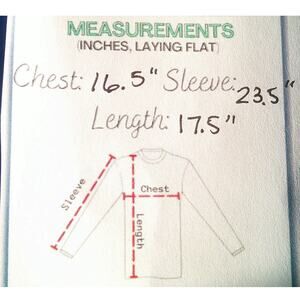 MEASUREMENTS
(INCHES, LAYING FLAT)
Chest: 16.5" Sleeve: 23.5"
Length: 17.5"
Sleeve
Chest
Length